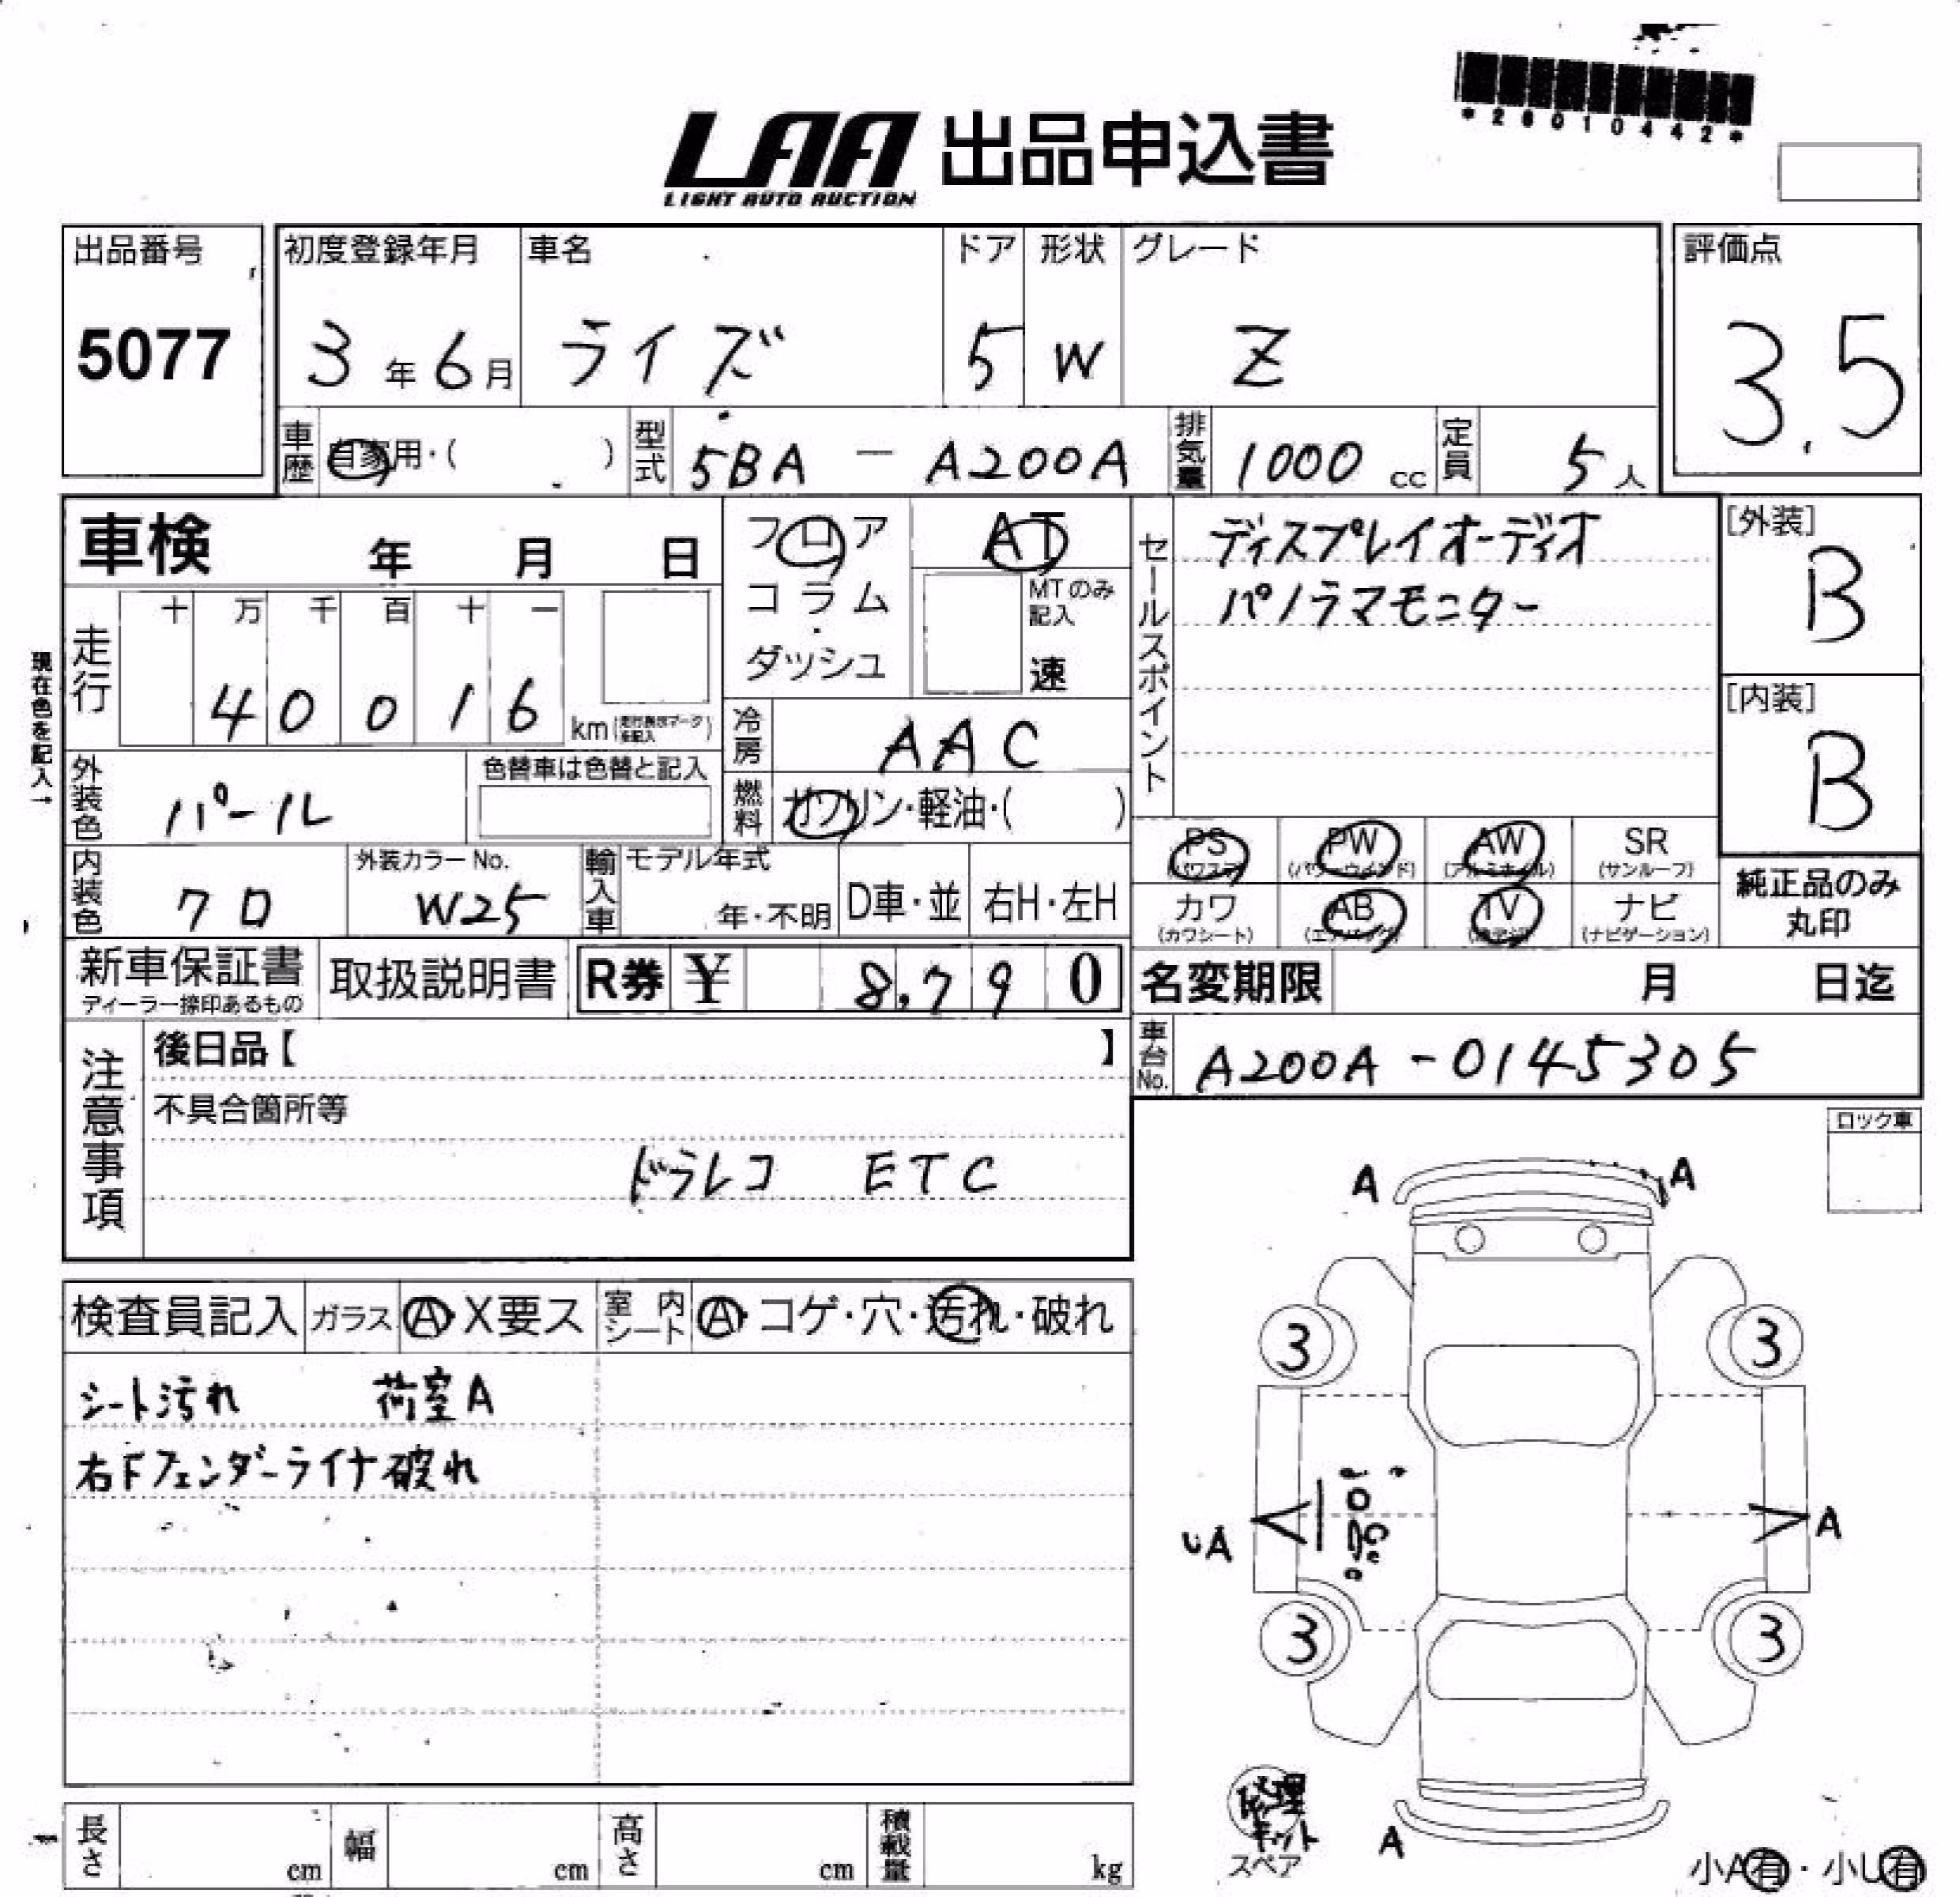 *26010442*
LAA 出品申込書
LIGHT AUTO AUCTION
出品番号 初度登録年月 車名 ドア 形状 グレード 評価点
5077 3年6月 ライズ 5 W Z 3.5
車歴 自家用・( ) 型式 5BA - A200A 排気量 1000 cc 定員 5人
車検 年 月 日 フロア AT セールスポイント ディスプレイオーディオ [外装]
コラム・ MTのみ記入 パノラマモニター B
ダッシュ 速
現在色を記入→
走行 十 万 千 百 十 一
4 0 0 1 6 km
冷房 AAC [内装]
外装色 パール 色替車は色替と記入 燃料 ガソリン・軽油・( ) B
PS PW AW SR
(パワステ) (パワーウインド) (アルミホイル) (サンルーフ)
内装色 クロ 外装カラーNo. W25 輸入車 モデル年式 年・不明 D車・並 右H・左H
カワ AB TV ナビ 純正品のみ
(カワシート) (エアバッグ) (ナビゲーション) 丸印
新車保証書 取扱説明書 R券 ¥ 8,790 名変期限 月 日迄
ディーラー捺印あるもの
注意事項 後日品【 】 車台No. A200A-0145305
不具合箇所等
ドラレコ ETC
ロック車
A A
検査員記入 ガラス A・X要ス 室内シート A・コゲ・穴・汚れ・破れ
シート汚れ 荷室A
右Fフェンダーライナ破れ
3 3
UA A
3 3
修理
キット
スペア
A
小A有・小U有
長さ cm 幅 cm 高さ cm 積載量 kg